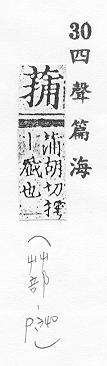 30 四聲篇海
蒱
蒲胡切摴
丨戲也
(艸部,p.340)